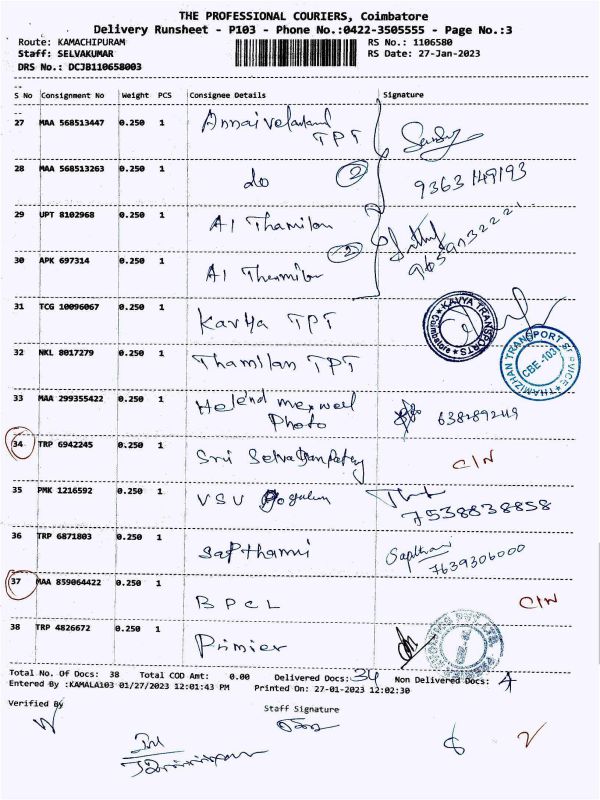 THE PROFESSIONAL COURIERS, Coimbatore
Delivery Runsheet - P103 - Phone No.:0422-3505555 - Page No.:3
Route: KAMACHIPURAM RS No.: 1106580
Staff: SELVAKUMAR RS Date: 27-Jan-2023
DRS No.: DCJB110658003
S No Consignment No Weight PCS Consignee Details Signature
27 MAA 568513447 0.250 1 TPT
28 MAA 568513263 0.250 1 do 2 9363149193
29 UPT 8102968 0.250 1 A1 Thamilan
30 APK 697314 0.250 1 A1 2
31 TCG 10096067 0.250 1 Kavya TPT KAVYA TRANSPORTS Coimbatore
32 NKL 8017279 0.250 1 Thamilan TPT THAMIZHAN TRANSPORT SERVICE CBE -103
33 MAA 299355422 0.250 1
Photo
34 TRP 6942245 0.250 1 Sri C/N
35 PMK 1216592 0.250 1 VSV
7538838858
36 TRP 6871803 0.250 1 Sapthami
7639306000
37 MAA 859064422 0.250 1 BPCL C/N
38 TRP 4826672 0.250 1 Primier
Total No. Of Docs: 38 Total COD Amt: 0.00 Delivered Docs: 34 Non Delivered Docs: 4
Entered By :KAMALA103 01/27/2023 12:01:43 PM Printed On: 27-01-2023 12:02:30
Verified By Staff Signature
2